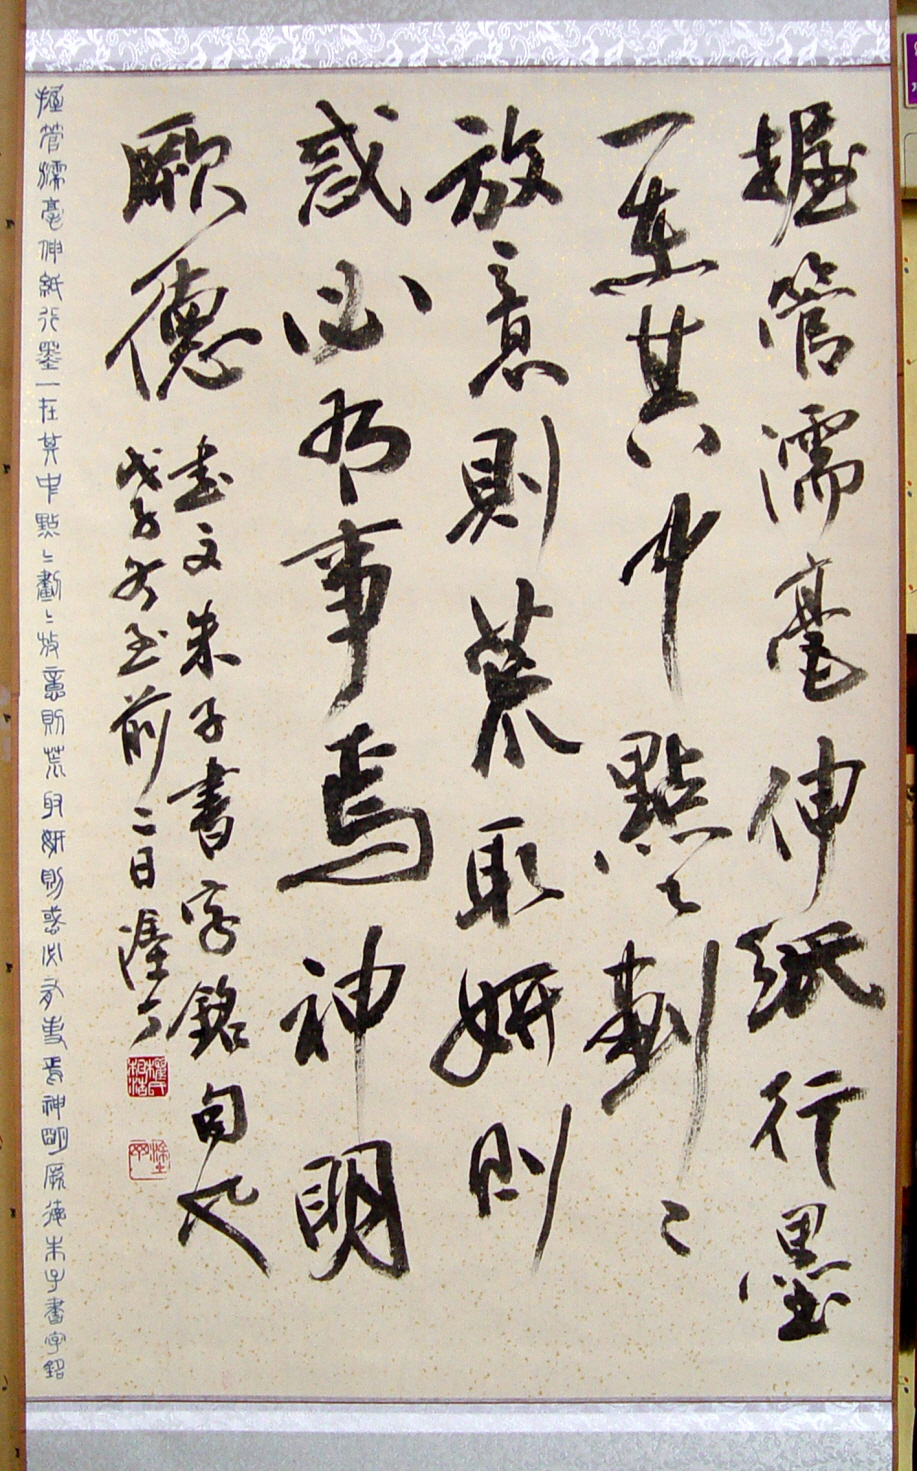 握管濡毫伸紙行墨
一在其中點〻劃〻
放意則荒取妍則
惑必有事焉神明
厥德
書文朱子書字銘句也
戊子冬至前二日
握管濡毫伸紙行墨一在其中點〻劃〻放意則荒取妍則惑必有事焉神明厥德朱子書字銘